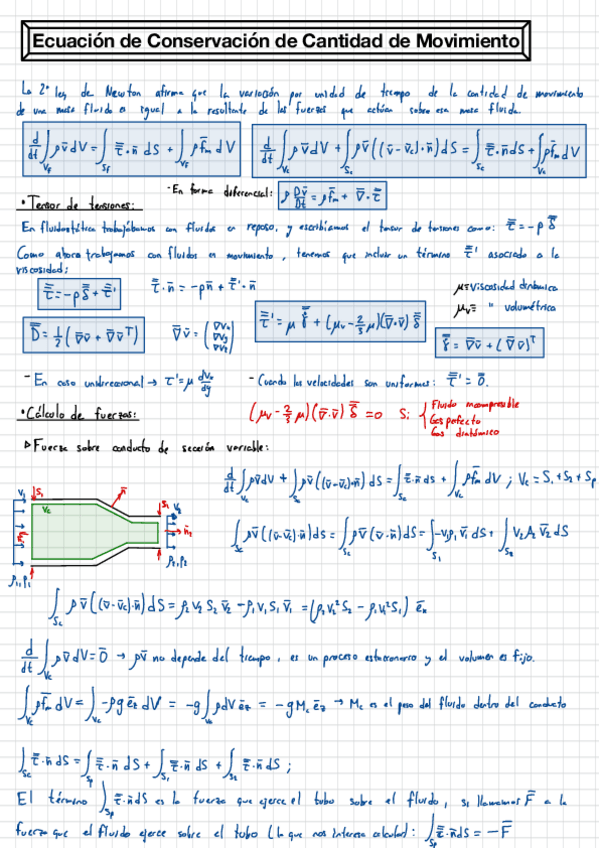 Ecuación de Conservación de Cantidad de Movimiento
La 2ª ley de Newton afirma que la variación por unidad de tiempo de la cantidad de movimiento
de una masa fluida es igual a la resultante de las fuerzas que actúan sobre esa masa fluida.
d/dt ∫_Vf ρv̄ dV = ∫_Sf τ̿·n̄ dS + ∫_Vf ρf̄m dV
d/dt ∫_Vc ρv̄ dV + ∫_Sc ρv̄((v̄-v̄c)·n̄) dS = ∫_Sc τ̿·n̄ dS + ∫_Vc ρf̄m dV
- En forma diferencial: ρ Dv̄/Dt = ρf̄m + ∇̄·τ̿
• Tensor de tensiones:
En fluidostática trabajábamos con fluidos en reposo, y escribíamos el tensor de tensiones como: τ̿ = -p δ̿
Como ahora trabajamos con fluidos en movimiento, tenemos que incluir un término τ̿' asociado a la
viscosidad:
τ̿ = -p δ̿ + τ̿'
τ̿·n̄ = -p n̄ + τ̿'·n̄
μ ≡ Viscosidad dinámica
μv ≡ " volumétrica
D̿ = 1/2 (∇̄v̄ + ∇̄v̄ᵀ)
∇̄v̄ =
τ̿' = μ γ̿ + (μv - 2/3 μ)(∇̄·v̄) δ̿
γ̿ = ∇̄v̄ + (∇̄v̄)ᵀ
- En caso unidireccional → τ' = μ dvx/dy
- Cuando las velocidades son uniformes: τ̿' = 0̿.
• Cálculo de fuerzas:
(μv - 2/3 μ)(∇̄·v̄) δ̿ = 0 Si { Fluido incompresible
Gas perfecto
▷ Fuerza sobre conducto de sección variable:
d/dt ∫_Vc ρv̄ dV + ∫_Sc ρv̄((v̄-v̄c)·n̄) dS = ∫_Sc τ̿·n̄ dS + ∫_Vc ρf̄m dV ; Vc = S1 + S2 + Sp
V1 S1 n̄ S2 V2
Vc
n̄2
P1, ρ1 P2, ρ2
∫_Sc ρv̄((v̄-v̄c)·n̄) dS = ∫_Sc ρv̄(v̄·n̄) dS = ∫_S1 -v1ρ1 v̄1 dS + ∫_S2 v2 ρ2 v̄2 dS
∫_Sc ρv̄((v̄-v̄c)·n̄) dS = ρ2 v2 S2 v̄2 - ρ1 v1 S1 v̄1 = (ρ2 v2² S2 - ρ1 v1² S1) ēx
d/dt ∫_Vc ρv̄ dV = 0̄ → ρv̄ no depende del tiempo, es un proceso estacionario y el volumen es fijo.
∫_Vc ρf̄m dV = ∫_Vc -ρg ēz dV = -g ∫_Vc ρdV ēz = -g Mc ēz → Mc es el peso del fluido dentro del conducto
∫_Sc τ̿·n̄ dS = ∫_Sp τ̿·n̄ dS + ∫_S1 τ̿·n̄ dS + ∫_S2 τ̿·n̄ dS ;
El término ∫_Sp τ̿·n̄ dS es la fuerza que ejerce el tubo sobre el fluido, si llamamos F̄ a la
fuerza que el fluido ejerce sobre el tubo (lo que nos interesa calcular): ∫_Sp τ̿·n̄ dS = -F̄